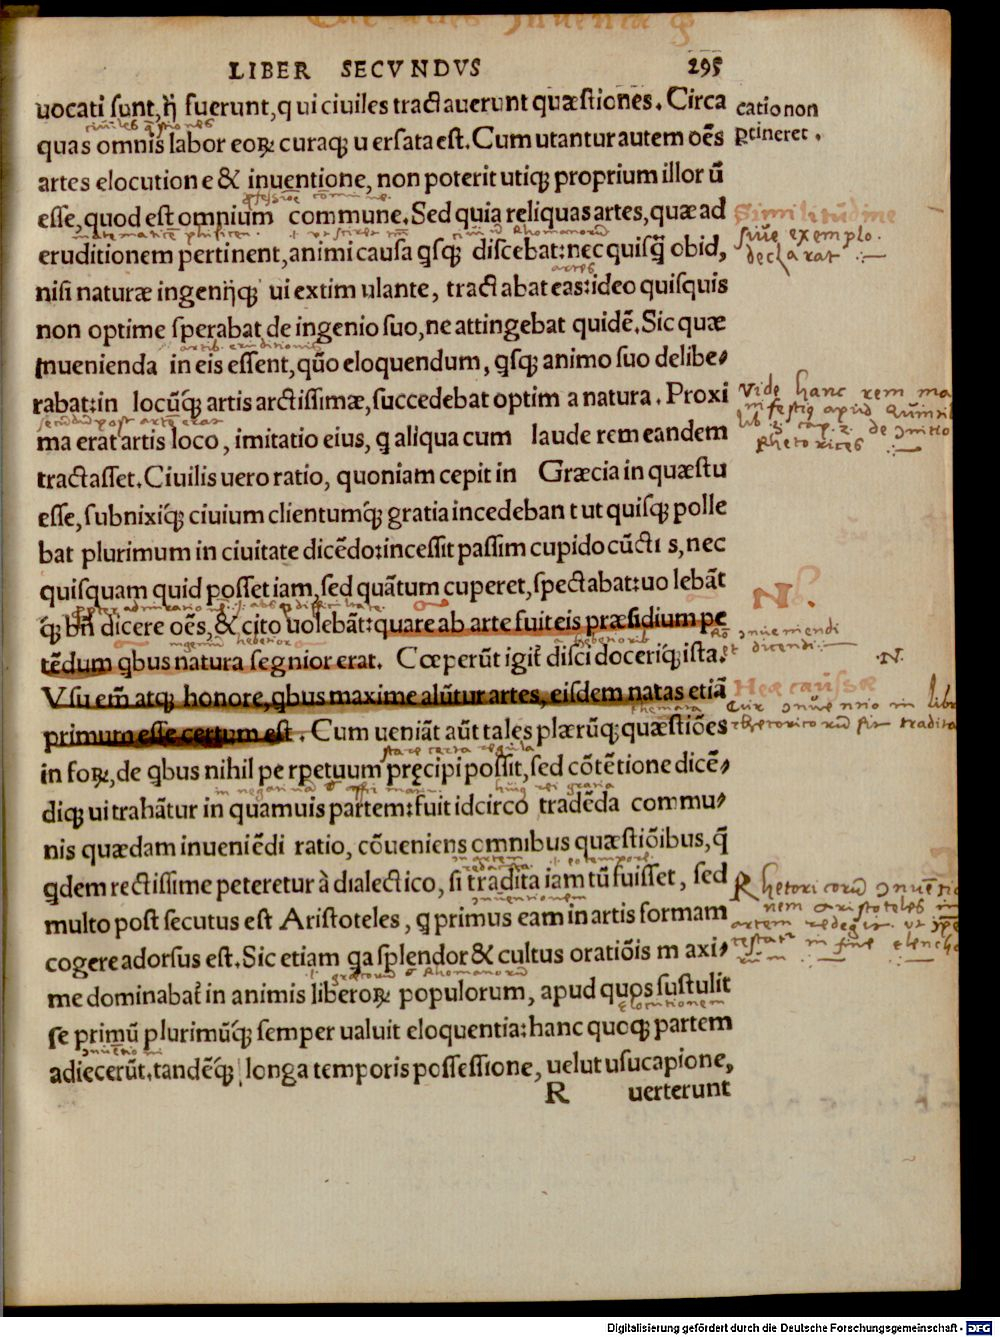 LIBER SECVNDVS 295
uocati sunt, ꝗ̃ fuerunt, qui ciuiles tractauerunt quæstiones. Circa
quas omnis labor eoꝝ curaqꝫ uersata est. Cum utantur autem oẽs
artes elocutione & inuentione, non poterit utiqꝫ proprium illorũ
esse, quod est omnium commune. Sed quia reliquas artes, quæ ad
eruditionem pertinent, animi causa ꝗsqꝫ discebat: nec quisꝗ̃ obid,
nisi naturæ ingenijqꝫ ui extimulante, tractabat eas: ideo quisquis
non optime sperabat de ingenio suo, ne attingebat quidẽ. Sic quæ
inuenienda in eis essent, quõ eloquendum, ꝗsqꝫ animo suo delibe⸗
rabat: in locũqꝫ artis arctissimæ, succedebat optima natura. Proxi
ma erat artis loco, imitatio eius, ꝗ aliqua cum laude rem eandem
tractasset. Ciuilis uero ratio, quoniam cepit in Græcia in quæstu
esse, subnixiqꝫ ciuium clientumqꝫ gratia incedebant ut quisqꝫ polle
bat plurimum in ciuitate dicẽdo: incessit passim cupido cũctis, nec
quisquam quid posset iam, sed quãtum cuperet, spectabat: uolebãt
qꝫ bñ dicere oẽs, & cito uolebãt: quare ab arte fuit eis præsidium pe
tẽdum ꝗbus natura segnior erat. Cœperũt igit᷑ disci doceriqꝫ ista.
Vsu em̃ atqꝫ honore, ꝗbus maxime alũtur artes, eisdem natas etiã
primum esse certum est. Cum ueniãt aũt tales plærũqꝫ quæstiões
in foꝝ, de ꝗbus nihil perpetuum pręcipi possit, sed cõtẽtione dicẽ⸗
diqꝫ ui trahãtur in quamuis partem: fuit idcirco tradẽda commu⸗
nis quædam inueniẽdi ratio, cõueniens omnibus quæstiõibus, ꝗ̃
ꝗdem rectissime peteretur à dialectico, si tradita iam tũ fuisset, sed
multo post secutus est Aristoteles, ꝗ primus eam in artis formam
cogere adorsus est. Sic etiam ꝗa splendor & cultus oratiõis maxi⸗
me dominabat᷑ in animis liberoꝝ populorum, apud quos sustulit
se primũ plurimũqꝫ semper ualuit eloquentia: hanc quoqꝫ partem
adiecerũt. tandẽqꝫ longa temporis possessione, uelut usucapione,
R uerterunt
catio non
ꝑtineret.
Similitudine
siue exemplo
declarat
Vide hanc rem ma
nifestiꝗ apud Quintil
lib. 3. cap. 2. de initio
Rhetorices
Nb.
inueniendi
et dicendi
.N.
Hee caussæ
Cur inuentio in libr
rhetoricorũ sit tradita
Rhetoricorũ inuentio
nem Aristoteles in
artem redegit. ut ipse
testat᷑ in fine elencho
rum
Digitalisierung gefördert durch die Deutsche Forschungsgemeinschaft - DFG